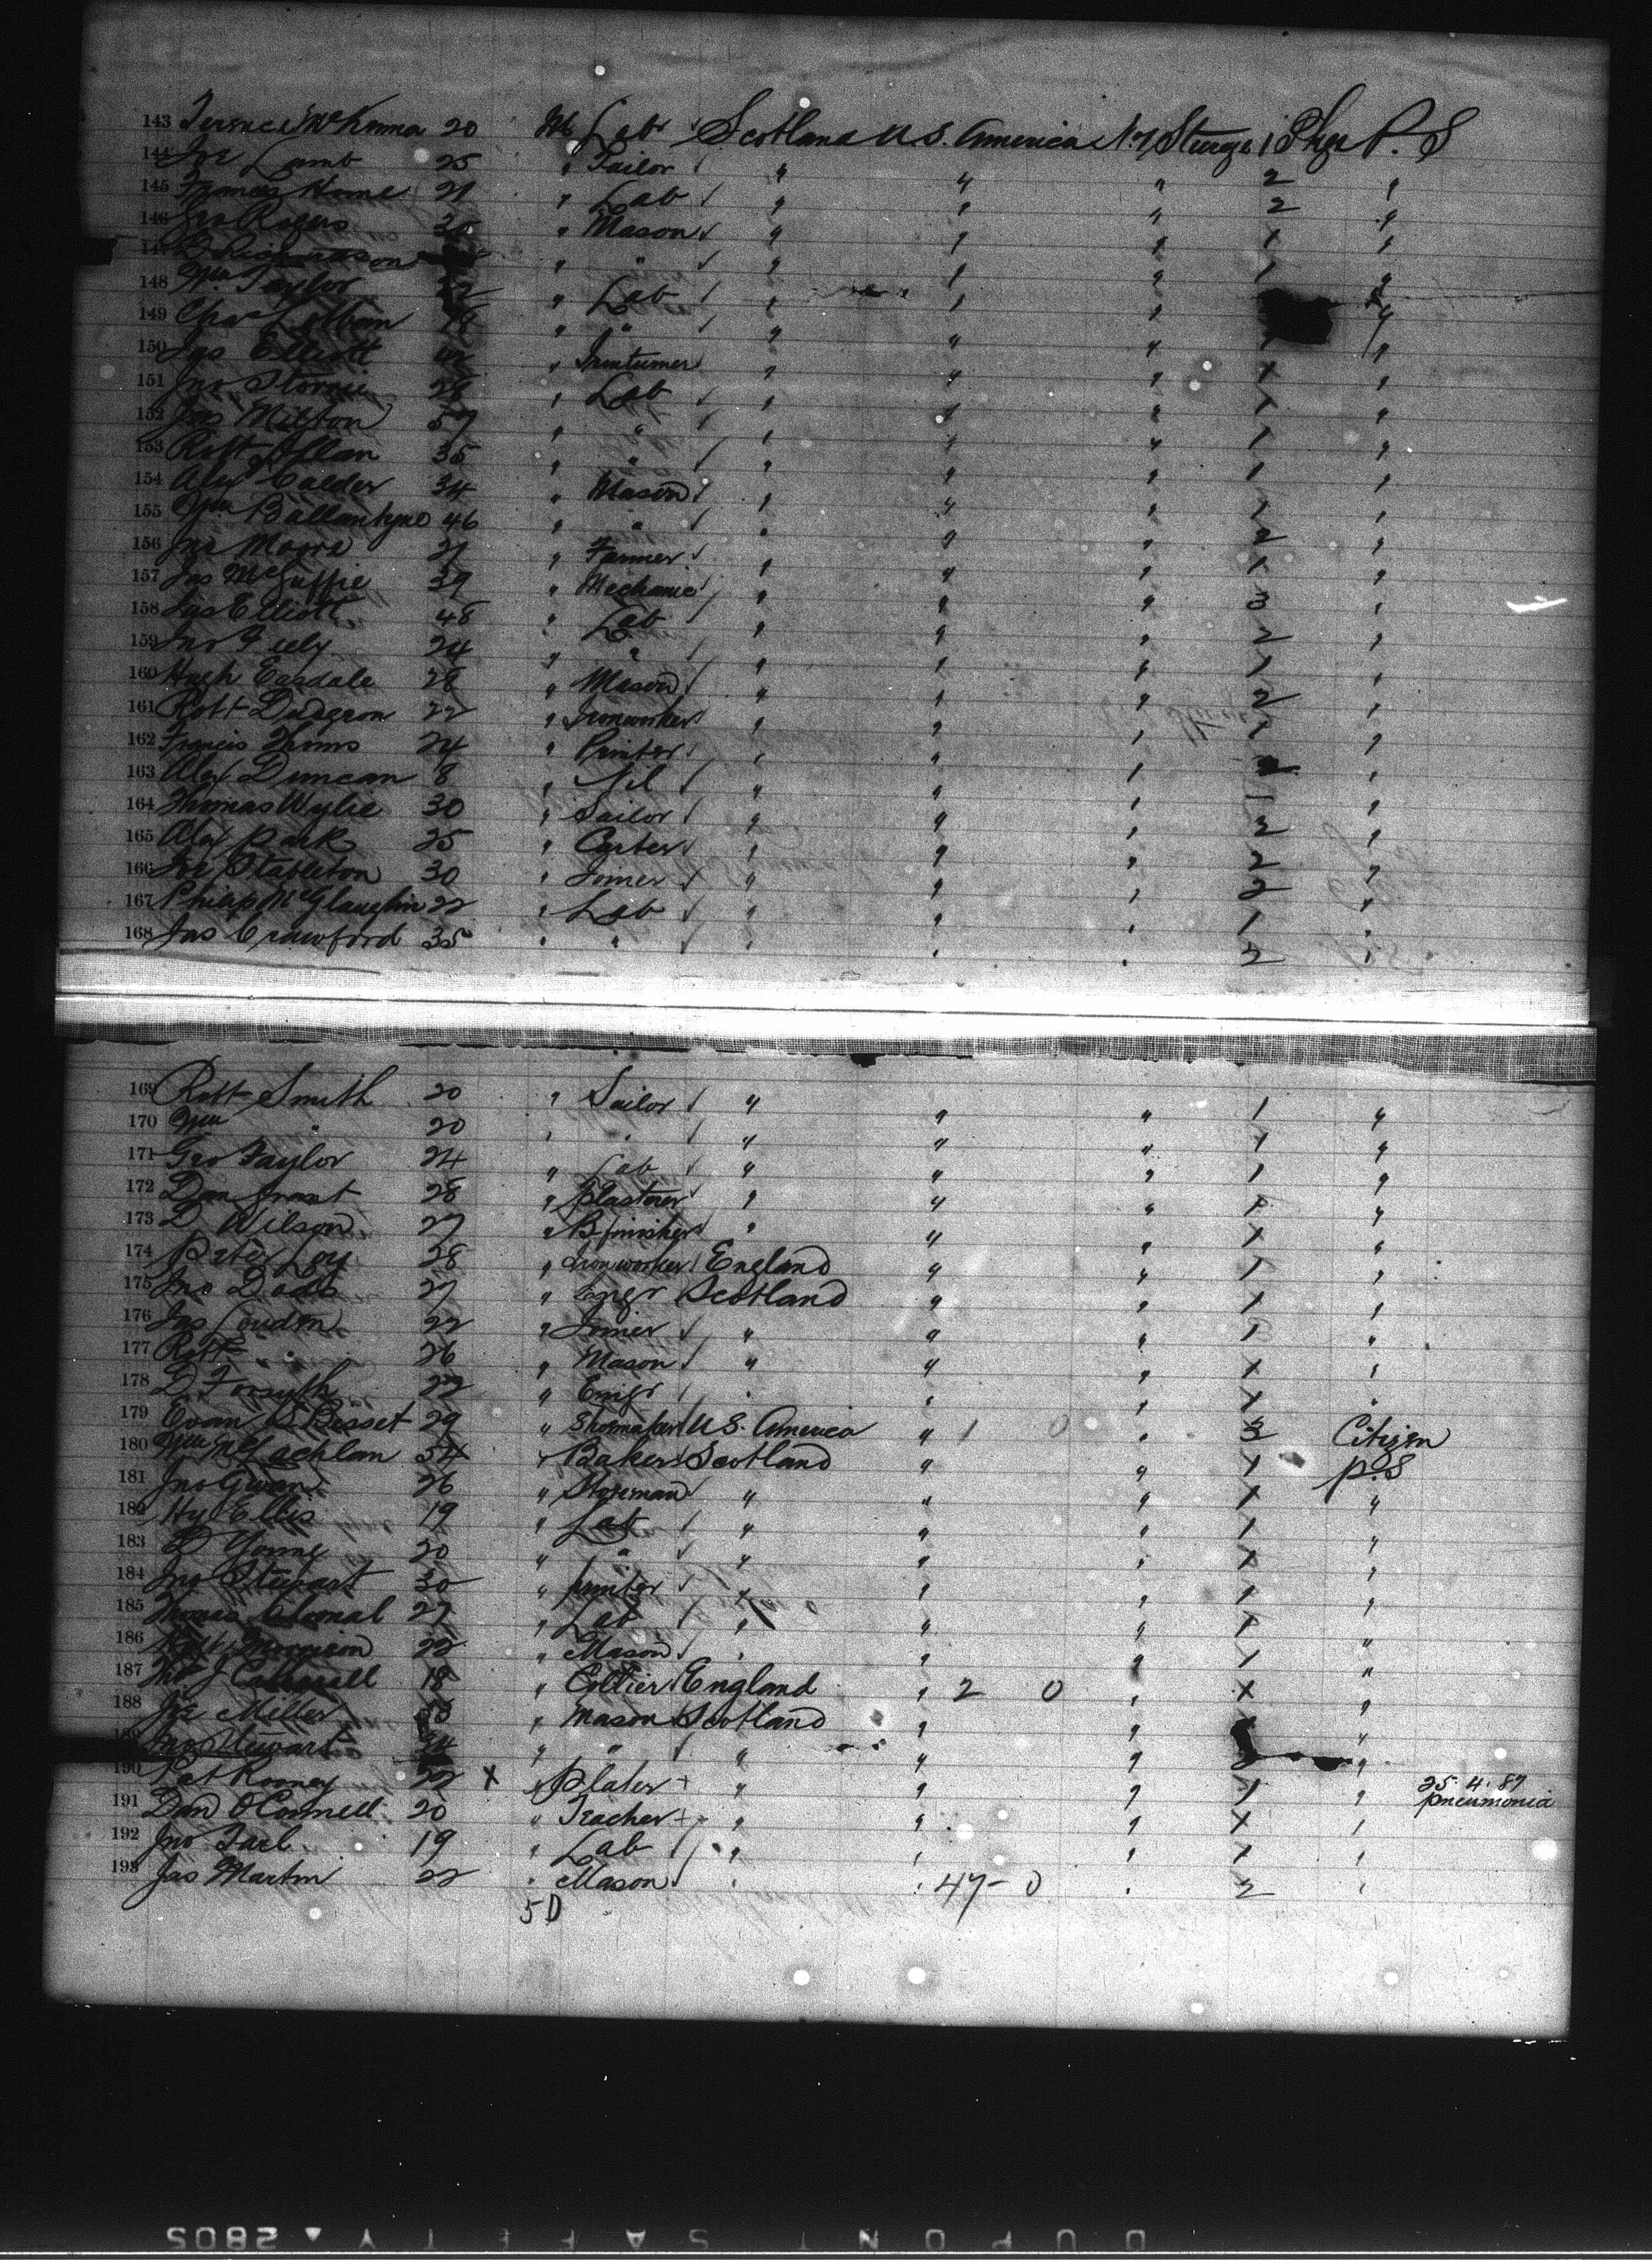 143 Terence McKenna 20 M Lab Scotland U.S. America N.Y Steerage 1 Pkge P.S
144 Joe Lamb 25 " Tailor " " " 2 "
145 Francis Home 21 " Lab " " " 2 "
146 Jno Rogers " Mason " " " 1 "
147 D Richardson " " " " " 1 "
148 Wm Taylor " Lab " " "
149 Chas " " " " " "
150 Jas Elliott " " " " 1 "
151 Jno Storrie 28 " Lab " " " 1 "
152 Jas Milton 57 " " " " " 1 "
153 Robt Allan 35 " " " " " 1 "
154 Alex Calder 34 " Mason " " " 1 "
155 Wm Ballantyne 46 " " " " " 2 "
156 Jno Moore 21 " Farmer " " " 1 "
157 Jas McGuffie 39 " Mechanic " " " 3 "
158 Jas Elliott 48 " Lab " " " 2 "
159 Jno Feely 24 " " " " " 1 "
160 Hugh Easdale 28 " Mason " " " 2 "
161 Robt Dudgeon 22 " Ironworker " " " 1 "
162 Francis Thoms 24 " Printer " " " "
163 Alex Duncan 8 " Nil " " " 1 "
164 Thomas Wylie 30 " Sailor " " " 2 "
165 Alex Park 25 " Carter " " " 2 "
166 Joe Stableton 30 " Joiner " " " 2 "
167 Philip McGlaughlin 22 " Lab " " " 1 "
168 Jas Crawford 35 " " " " " 2 "
169 Robt Smith 20 " Sailor " " " 1 "
170 Wm " 20 " " " " " 1 "
171 Geo Taylor 24 " Lab " " " 1 "
172 Dan Grant 28 " Plasterer " " " 1 "
173 D Wilson 27 " B. finisher " " " 1 "
174 Peter Loy 28 " Ironworker England " " 1 "
175 Jno Dods 27 " Engr Scotland " " 1 "
176 Jas Loudon 22 " Joiner " " " 1 "
177 Robt " 26 " Mason " " " 1 "
178 D. Forsyth 22 " Engr " " " 1 "
179 Evan S Bisset 29 " Shoemaker U.S. America " 1 0 " 3 Citizen
180 Wm McLachlan 54 " Baker Scotland " " 1 P.S
181 Jno Gwan 26 " Storeman " " " 1 "
182 Hy Ellis 19 " Lab " " " 1 "
183 D Young 20 " " " " " 1 "
184 Jno Stewart 30 " Printer " " " 1 "
185 Thomas 27 " Lab " " " 1 "
186 Morrison 22 " Mason " " " 1 "
187 J 18 " Collier England " 2 0 " 1 "
188 Joe Miller " Mason Scotland " " "
189 Jno Stewart " " " " " 2 "
190 Pat Rooney 22 X " Plater " " " 1 " 25. 4. 87
pneumonia
191 Dan O'Connell 20 " Teacher " " " 1 "
192 Jno Tarl 19 " Lab " " " 1 "
193 Jas Martin 22 " Mason " " 47-0 " 2 "
5D
DUPONT SAFETY ▲ 2805